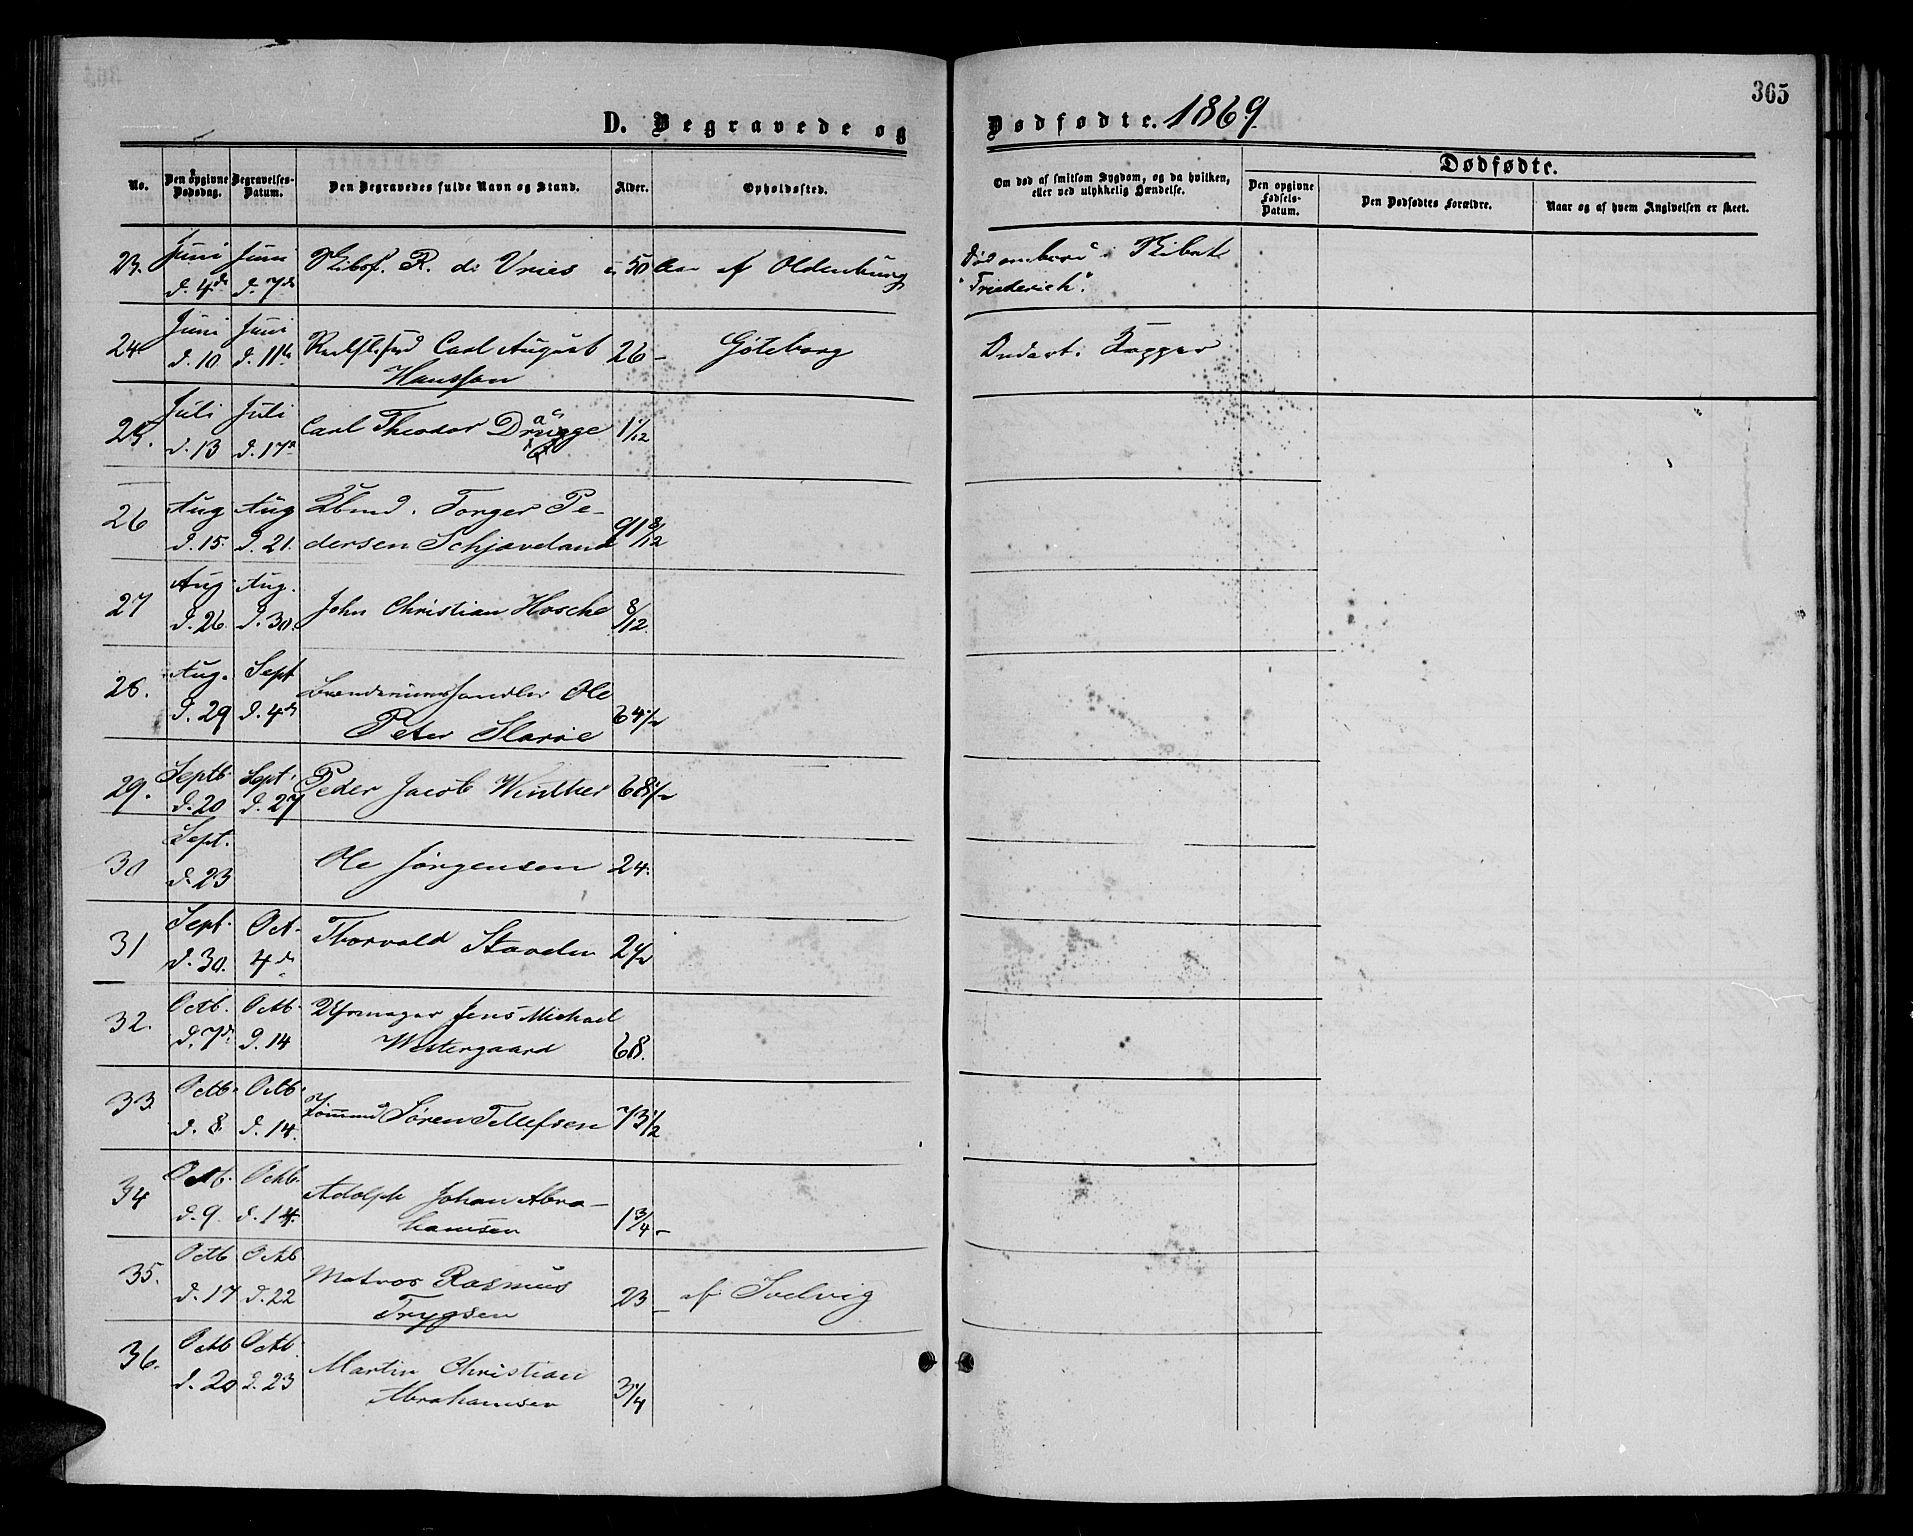 365
D. Begravede og Dødfødte. 1869
No.
Den opgivne Dødsdag.
Begravelses-Datum.
Den Begravedes fulde Navn og Stand.
Alder.
Opholdssted.
Om død af smitsom Sygdom, og da hvilken, eller ved ulykkelig Hændelse.
Dødfødte.
Den opgivne Fødsels-Datum.
Den Dødfødtes Forældre.
Naar og af hvem Angivelsen er skeet.
23. Juni Juni Skibsf. R. de Vries 50 af Oldenburg Død ombord i Skibet
d. 4de d. 7de "Friederich".
24 Juni Juni Carl August 26 - Göteborg Kopper
d. 10 d. 11te Hansson
25. Juli Juli Carl Theodor 1 1/12
d. 13 d. 17de
26 Aug Aug Torger Pe-
d. 15. d. 21. dersen Schjæveland 91 8/12
27 Aug. Aug. John Christian Hosche 8/12
d. 26 d. 30.
28. Aug. Sept Ole
d. 29 d. 4de Peter 64 1/2
29. Septb. Sept. Peder Jacob Winther 68 1/2
d. 20 d. 27
30 Sept. Ole Jørgensen 24.
d. 23
31 Sept. Oct. Thorvald 2 1/2
d. 30. 4de
32. Octb. Octb. Uhrmager Jens Michael
d. 7de d. 14 Westergaard 68.
33. Octb. Octb. Tømmmd Søren Tellefsen 73 1/2
d. 8. d. 14.
34 Octb. Octb. Adolph Johan Abra-
d. 9. d. 14. hamsen 1 3/4 -
35. Octb Octb Matros Rasmus
d. 17 d. 22 Trygsen 23 - af Soelvig
36. Octb Octb. Martin Christian
d. 20 d. 23 Abrahamsen 3 1/4